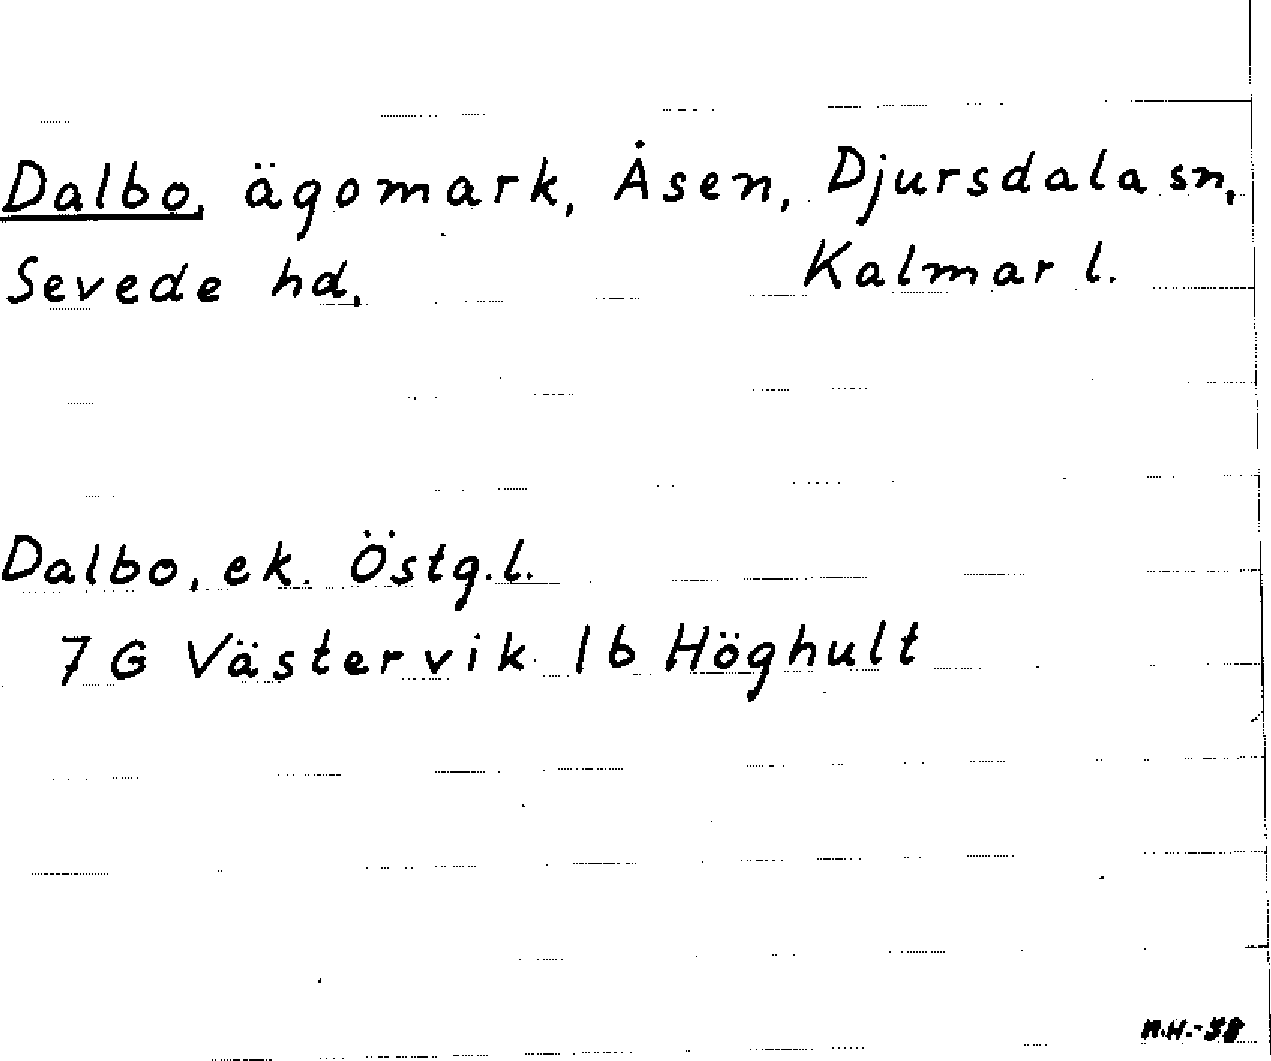 Dalbo, ägomark, Åsen, Djursdala sn,
Sevede hd, Kalmar l.
Dalbo, ek. Östg.l.
7 G Västervik 1b Höghult